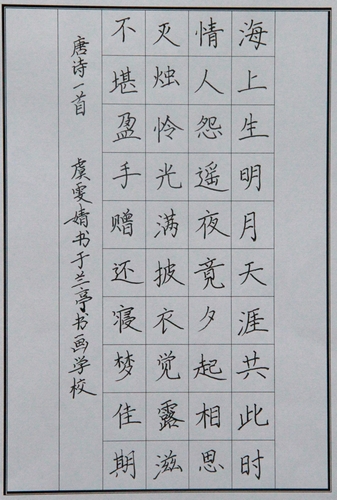 海上生明月天涯共此时
情人怨遥夜竟夕起相思
灭烛怜光满披衣觉露滋
不堪盈手赠还寝梦佳期
唐诗一首 虞雯婧书于兰亭书画学校